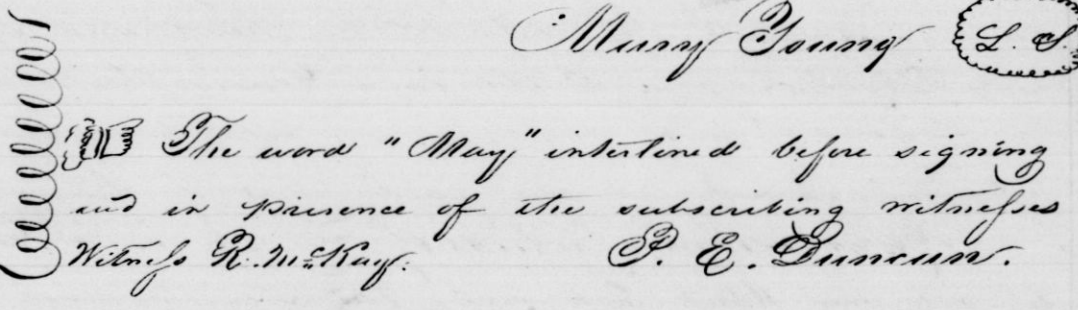 Mary Young L. S.
The word "May" interlined before signing
and in presence of the subscribing witnesses
Witness R. McKay. P. E. Duncan.